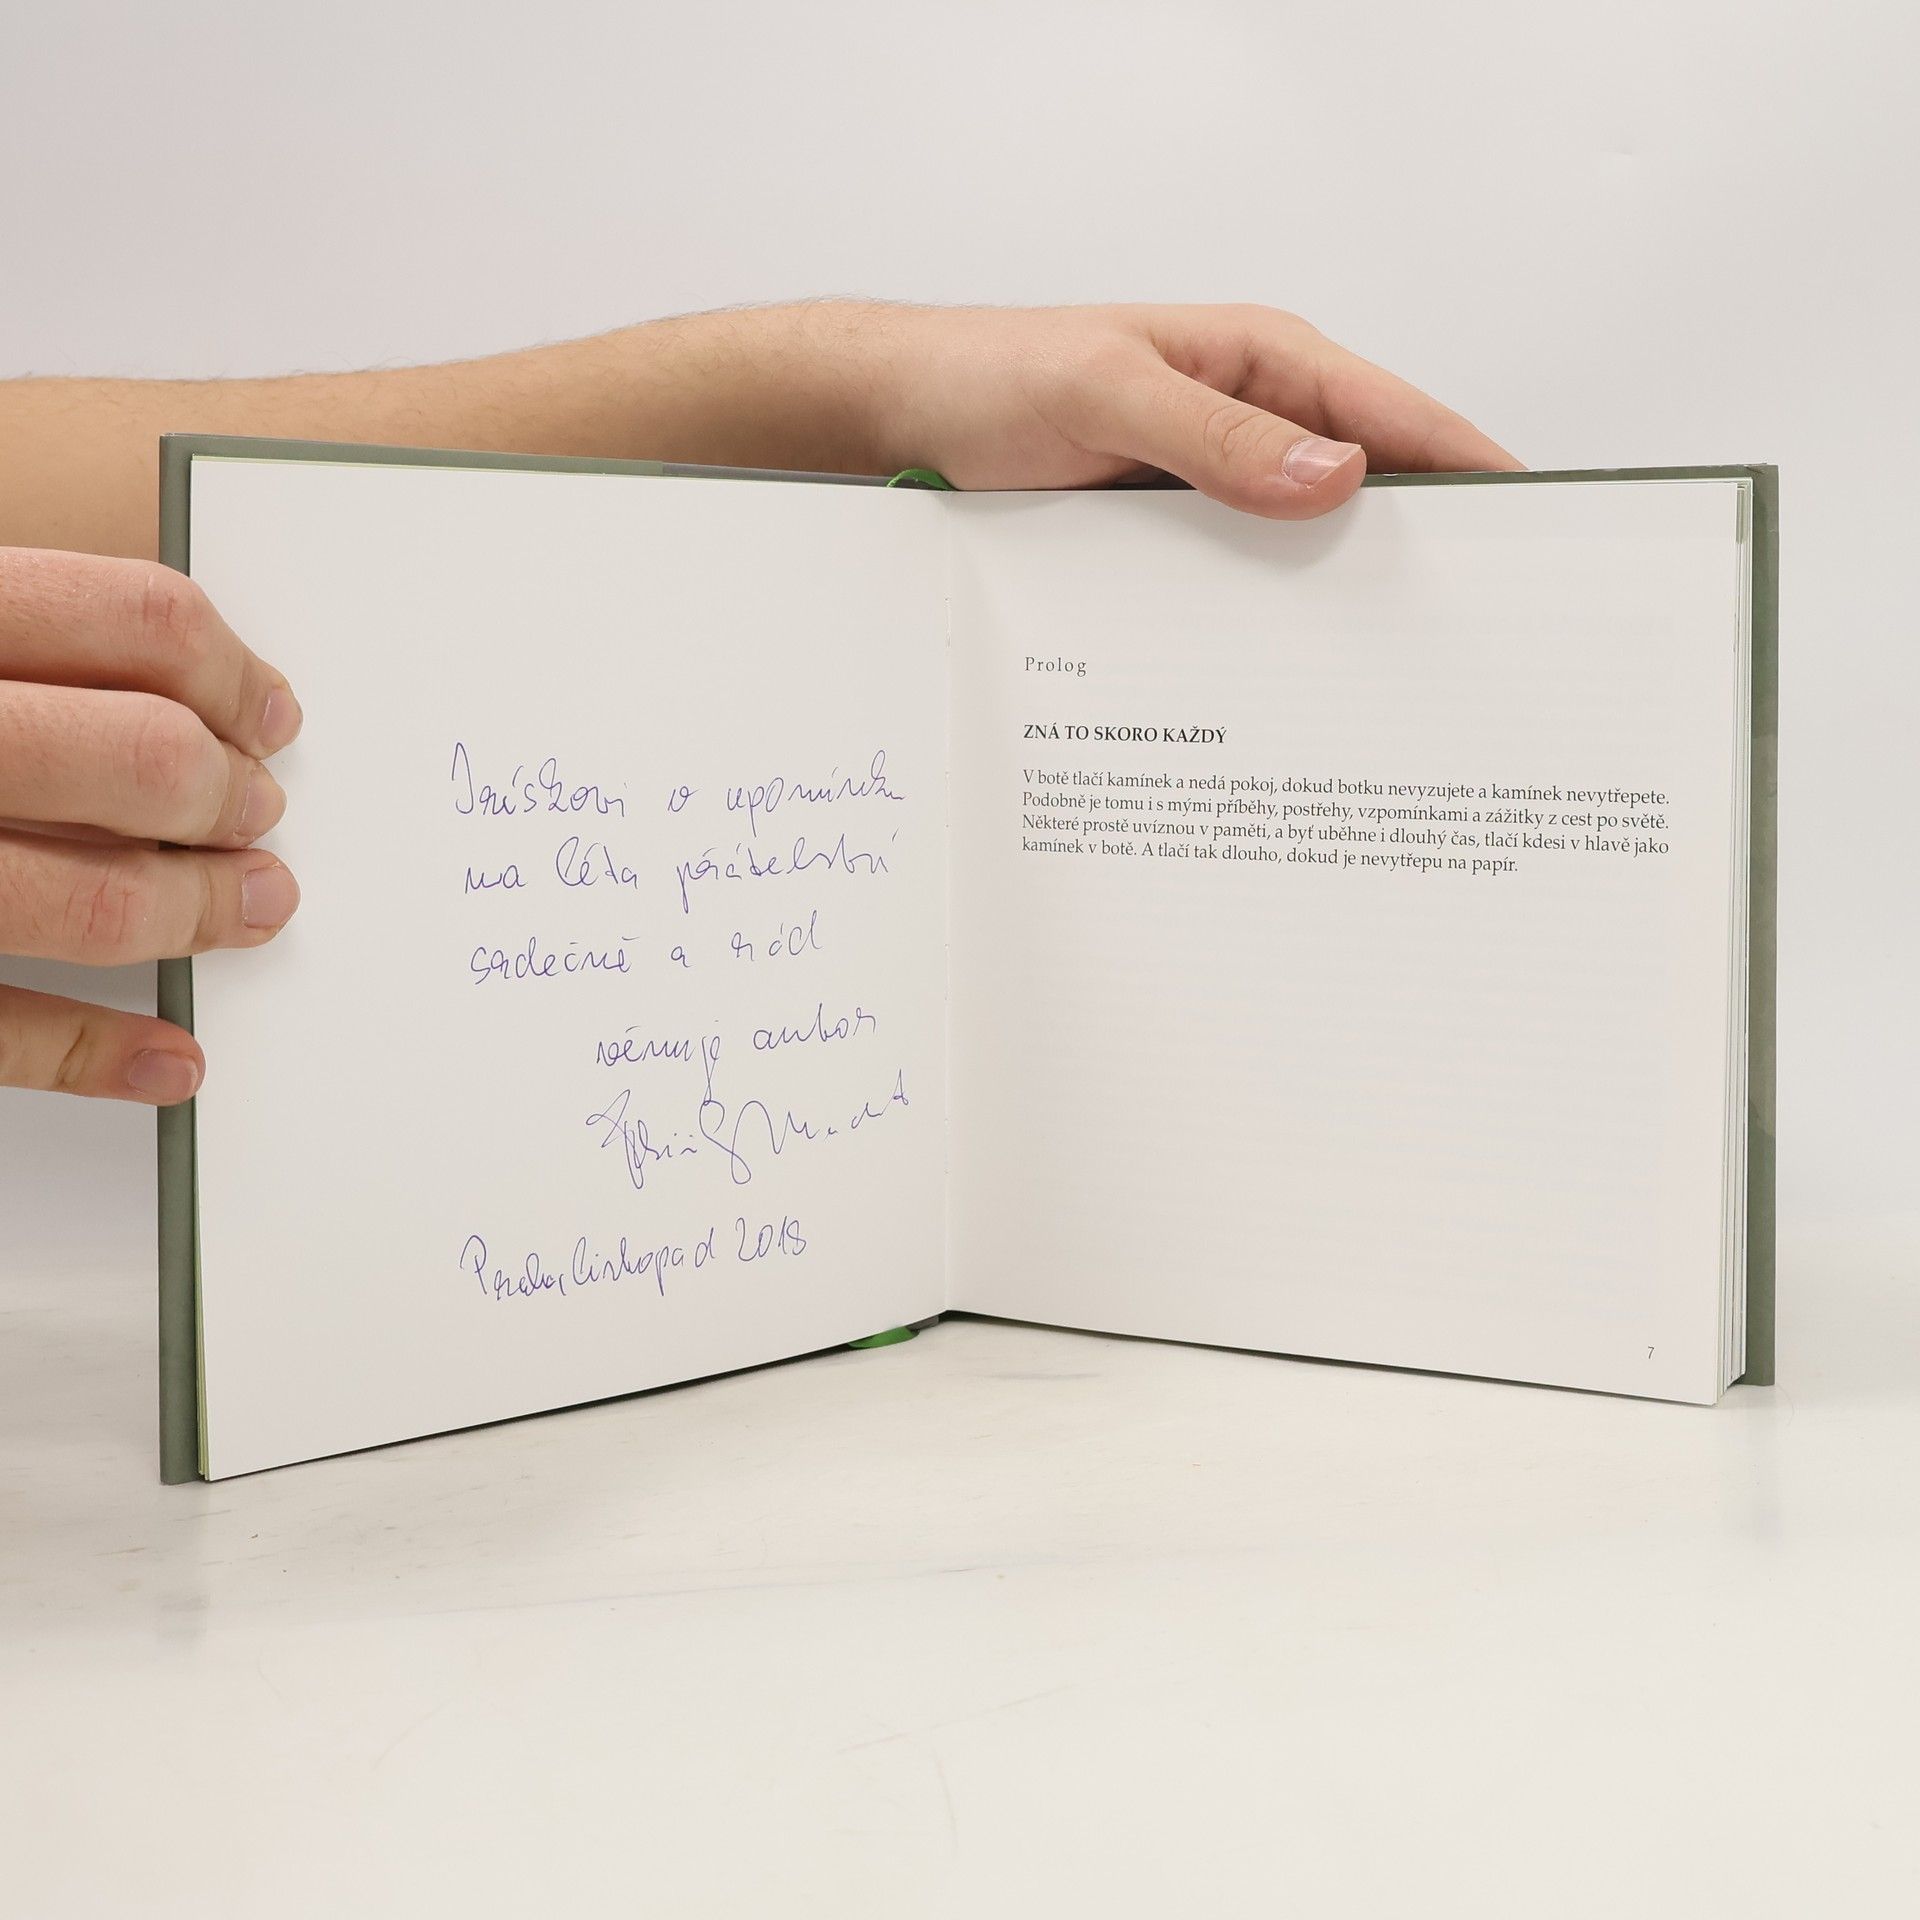 v upomínku
na léta přátelství
srdečně a rád
věnuje autor
Praha, listopad 2018
Prolog
ZNÁ TO SKORO KAŽDÝ
V botě tlačí kamínek a nedá pokoj, dokud botku nevyzujete a kamínek nevytřepete.
Podobně je tomu i s mými příběhy, postřehy, vzpomínkami a zážitky z cest po světě.
Některé prostě uvíznou v paměti, a byť uběhne i dlouhý čas, tlačí kdesi v hlavě jako
kamínek v botě. A tlačí tak dlouho, dokud je nevytřepu na papír.
7